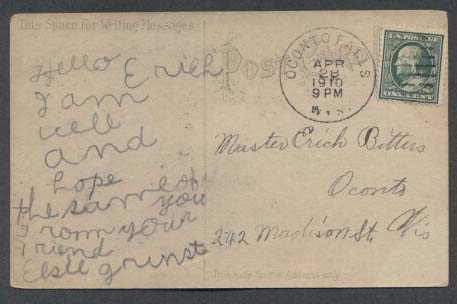 This Space for Writing Messages
Hello Erich
I am
well
and
hope
the same of
you
From your
Friend
Post
OCONTO FALLS
APR
28
1910
9 PM
WIS.
U.S. POSTAGE
ONE CENT
Master Erich Bitters
Oconto
242 Madison St. Wis
This side for the Address only